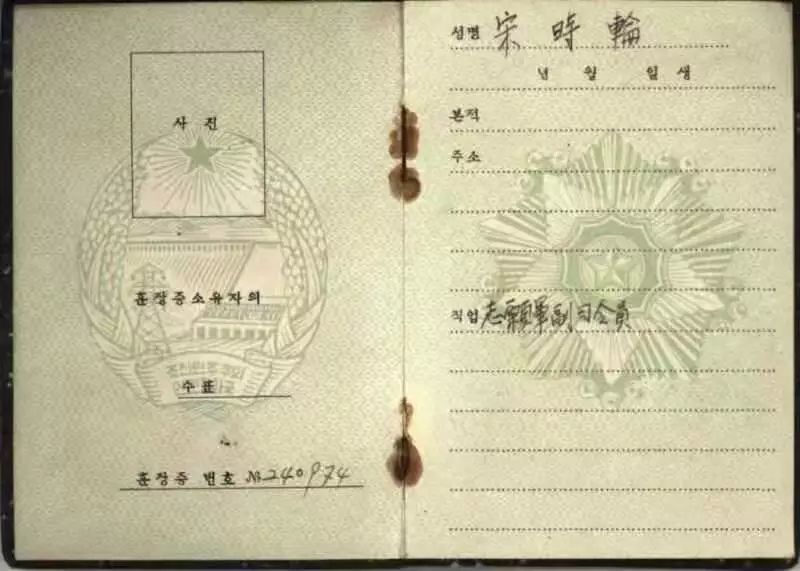 사 진
훈장증소유자의
수 표
훈장증 번호 № 240974
성명 宋時輪
년 월 일생
본적
주소
직업 志願軍副司令員